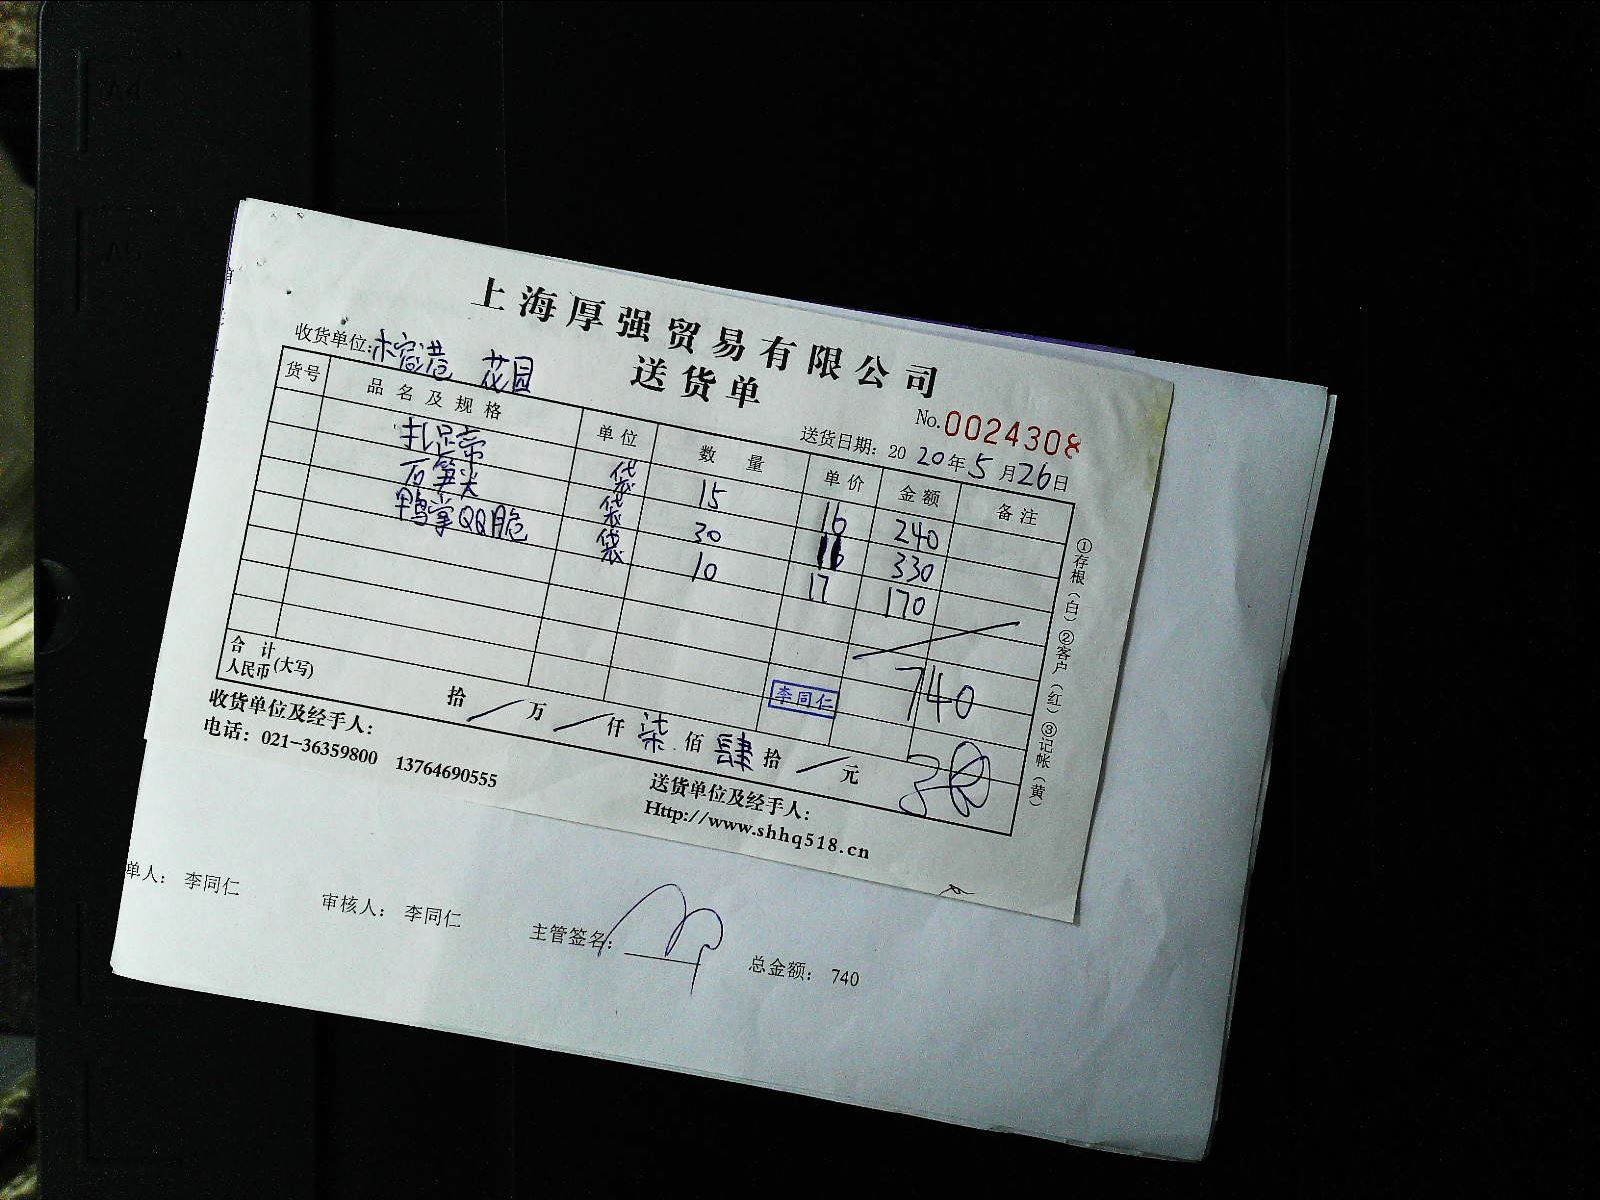 上海厚强贸易有限公司
送货单
收货单位: 花园
No.0024308
送货日期: 2020年5月26日
货号 品名及规格 单位 数量 单价 金额 备注
袋 15 16 240
石笋尖 袋 30 330
鸭掌QQ脆 袋 10 17 170
740
合计
人民币(大写) 拾 / 万 / 仟 柒 佰 肆 拾 / 元
李同仁
①存根(白)②客户(红)③记帐(黄)
收货单位及经手人:
送货单位及经手人:
电话: 021-36359800 13764690555
Http://www.shhq518.cn
单人: 李同仁 审核人: 李同仁 主管签名: 总金额: 740